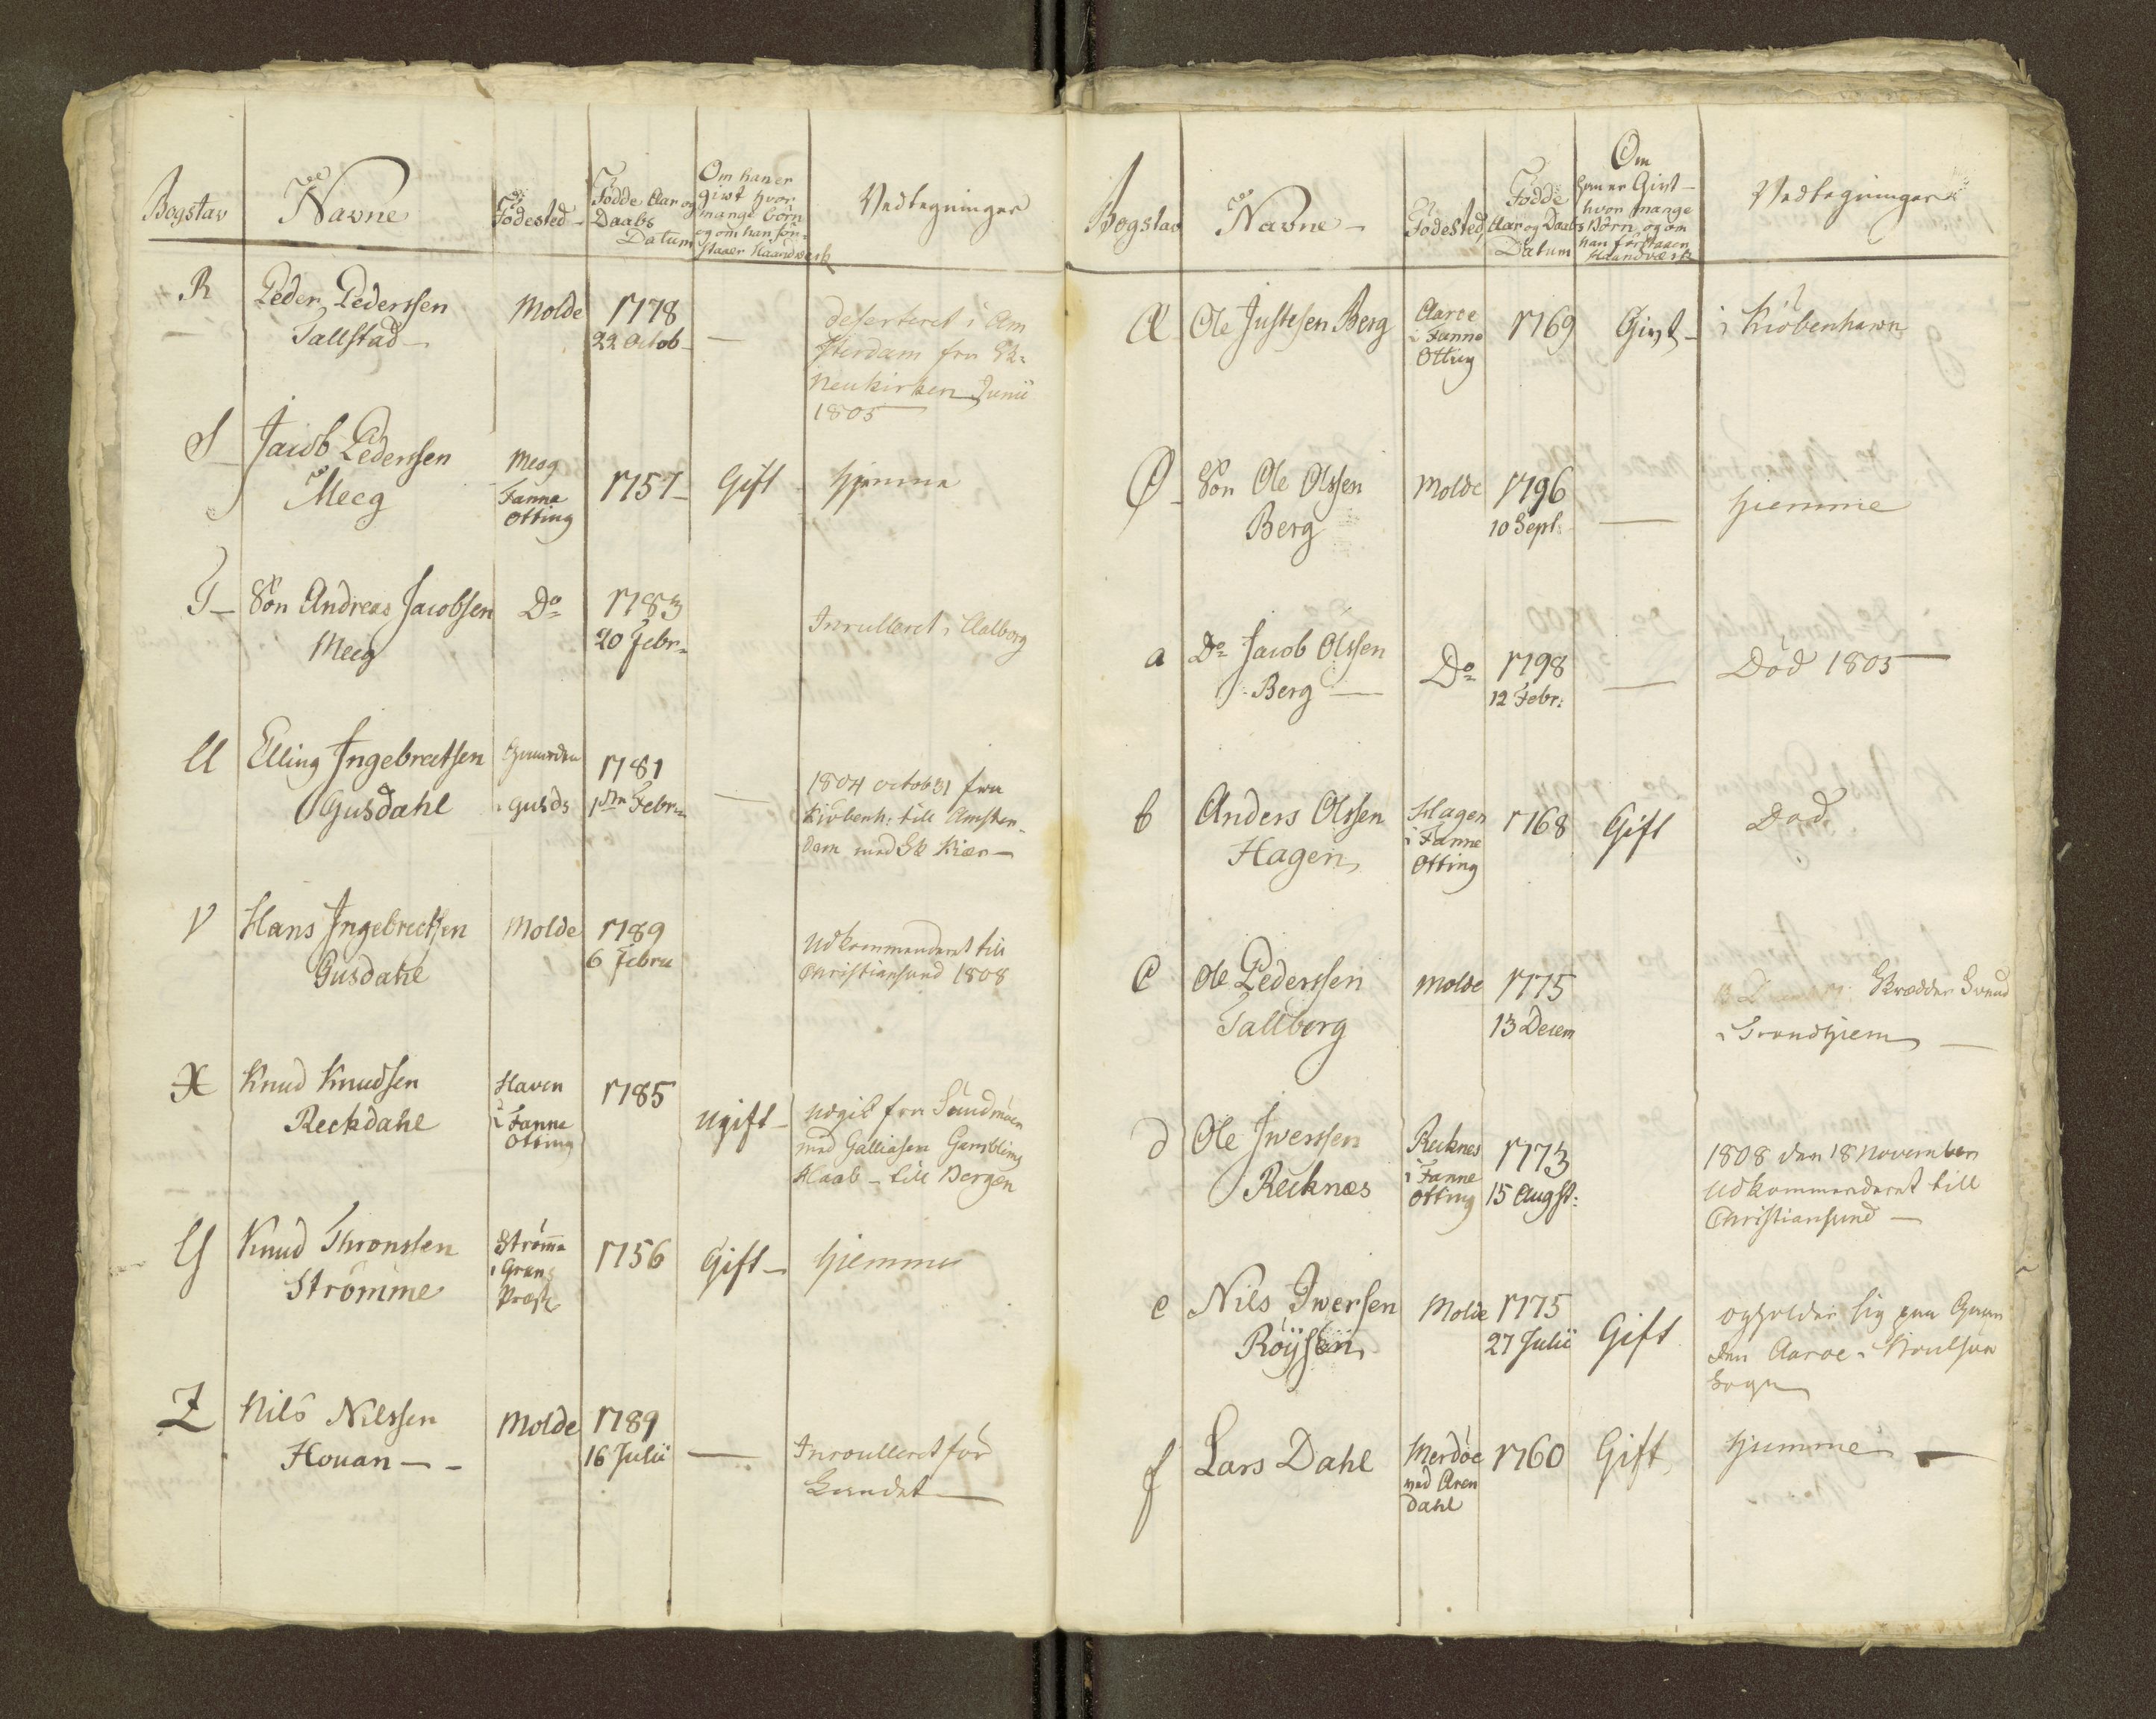 Bogstav
Navne
Födested
Födde Aar og
Daabs
Datum
Om han er
givt hvor
mange börn
og om han for-
staaer Haandverk
Vedtegninger
R
Peder Pederssen
Tallstad
Molde
1778
22 Octob
—
deserteret i Am
sterdam fra Sk:
Neukirken Junii
1805
S
Jacob Pederssen
Meeg
Meeg
Fanne
Otting
1757
Gift
hjemme
T
Sön Andreas Jacobsen
Meeg
Do
1783
20 Febr
Inrulleret i Aalborg
U
Elling Ingebrectsen
Gusdahl
i Gusds
1781
1ste Febr
—
1804 Octob 31 fra
Kiöbenh: till Amster-
dam med Sk Kiær
V
Hans Ingebrectsen
Gusdahl
Molde
1789
6 Febru
Udkommanderet till
Christiansund 1808
X
Knud Knudsen
Reckdahl
Haven
i Fanne
Otting
1785
Ugift
Udgik fra Sundmöer
med Galliasen Gamblims
Haab - till Bergen
Y
Knud Thronssen
Strömme
Strömme
i Gran
Præst
1756
Gift
hjemme
Z
Nils Nilssen
Houan
Molde
1789
16 Julii
—
Inroulleret för
Landet
Bogstav
Navne
Fodested
Födde
Aar og Daabs
Datum
Om
han er Givt
hvor mange
Börn og om
han forstaaer
Haandværk
Vedtegninger
Æ
Ole Justesen Berg
Aaroe
i Fanne
Otting
1769
Givt
i Kiöbenhavn
Ø
Sön Ole Olssen
Berg
Molde
1796
10 Sept
—
hjemme
a
Do Jacob Olssen
Berg
Do
1798
12 Febr:
—
Död 1805
b
Anders Olssen
Hagen
Hagen
i Fanne
Otting
1768
Gift
Död
c
Ole Pederssen
Tallberg
Molde
1775
13 Decem
Skrædder Svend
i Trondhjem
d
Ole Iwerssen
Recknæs
Recknes
i Fanne
Otting
1773
15 Augst:
1808 den 18 November
Udkommanderet till
Christiansund
e
Nils Iwersen
Röysen
Molde
1775
27 Julii
Gift
opholder sig paa Gaar
den Aaroe i
Sogn
f
Lars Dahl
Merdöe
ved Aren
dahl
1760
Gift
hjemme